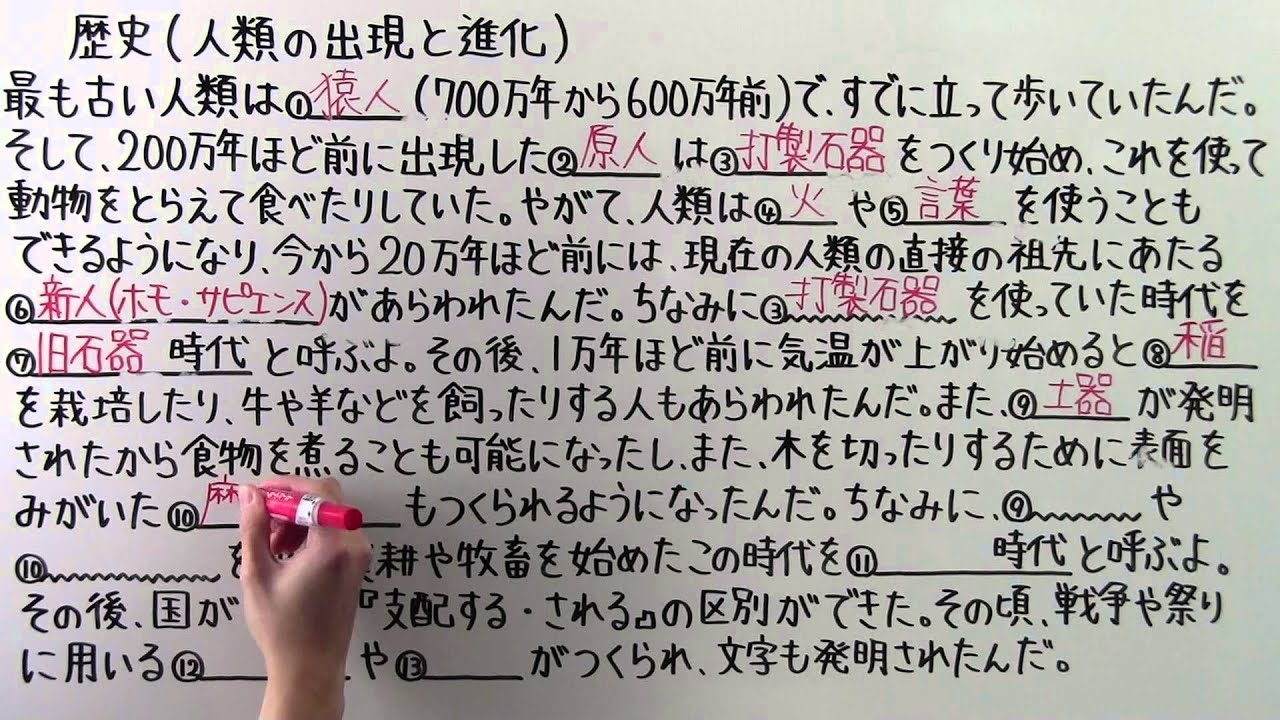 歴史(人類の出現と進化)
最も古い人類は①猿人(700万年から600万年前)で、すでに立って歩いていたんだ。
そして、200万年ほど前に出現した②原人は③打製石器をつくり始め、これを使って
動物をとらえて食べたりしていた。やがて、人類は④火や⑤言葉を使うことも
できるようになり、今から20万年ほど前には、現在の人類の直接の祖先にあたる
⑥新人(ホモ・サピエンス)があらわれたんだ。ちなみに③打製石器を使っていた時代を
⑦旧石器時代と呼ぶよ。その後、1万年ほど前に気温が上がり始めると⑧稲
を栽培したり、牛や羊などを飼ったりする人もあらわれたんだ。また、⑨土器が発明
されたから食物を煮ることも可能になったし、また、木を切ったりするために表面を
みがいた⑩麻もつくられるようになったんだ。ちなみに、⑨や
⑩を耕や牧畜を始めたこの時代を⑪時代と呼ぶよ。
その後、国が『支配する・される』の区別ができた。その頃、戦争や祭り
に用いる⑫や⑬がつくられ、文字も発明されたんだ。